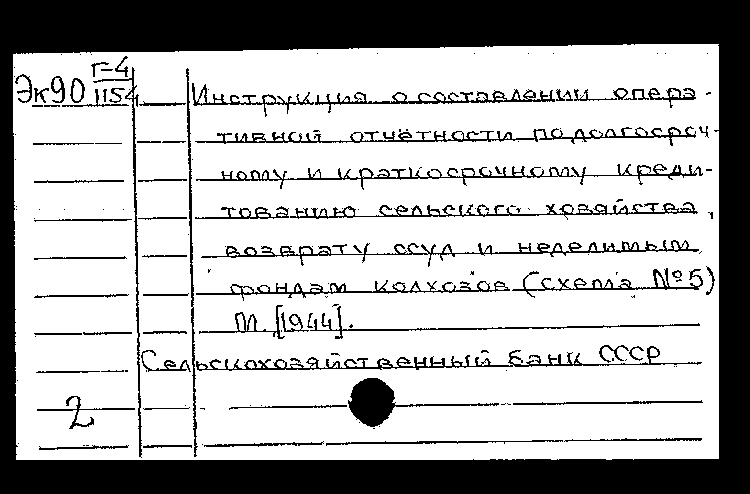 Эк90 Г-4/1154
Инструкция о составлении опера-
тивной отчётности по долгосроч-
ному и краткосрочному креди-
тованию сельского хозяйства,
возврату ссуд и неделимым
фондам колхозов (схема №5)
М. [1944].
Сельскохозяйственный банк СССР
2